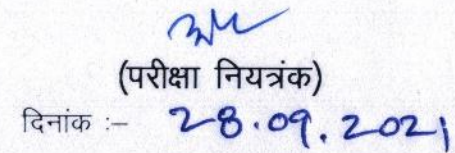 (परीक्षा नियत्रंक)
दिनांक :- 28.09.2021